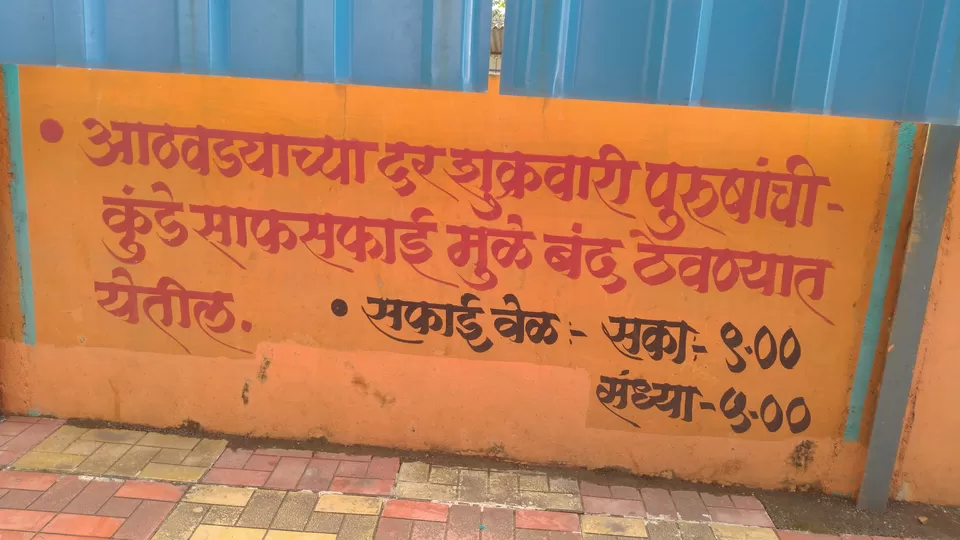 • आठवडयाच्या दर शुक्रवारी पुरुषांची-
कुंडे साफसफाई मुळे बंद ठेवण्यात
येतील.
• सफाई वेळ :- सका:- ९.००
संध्या - ५.००